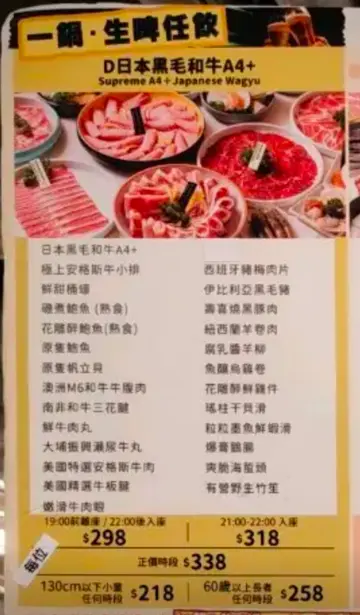 一鍋·生啤任飲
D日本黑毛和牛A4+
Supreme A4+Japanese Wagyu
日本黑毛和牛A4+
極上安格斯牛小排
鮮甜桶蠔
磯煮鮑魚(熟食)
花雕醉鮑魚(熟食)
原隻鮑魚
原隻帆立貝
澳洲M6和牛牛腹肉
南非和牛三花腱
鮮牛肉丸
大埔振興瀨尿牛丸
美國特選安格斯牛肉
美國精選牛板腱
嫩滑牛肉眼
西班牙豬梅肉片
伊比利亞黑毛豬
壽喜燒黑豚肉
紐西蘭羊卷肉
腐乳醬羊柳
魚釀烏雞卷
花雕醉鮮雞件
瑤柱干貝滑
粒粒墨魚鮮蝦滑
爆膏鵝腸
爽脆海蜇頭
有營野生竹笙
19:00前離座 / 22:00後入座
$298
21:00-22:00 入座
$318
每位
正價時段 $338
130cm以下小童
任何時段 $218
60歲以上長者
任何時段 $258